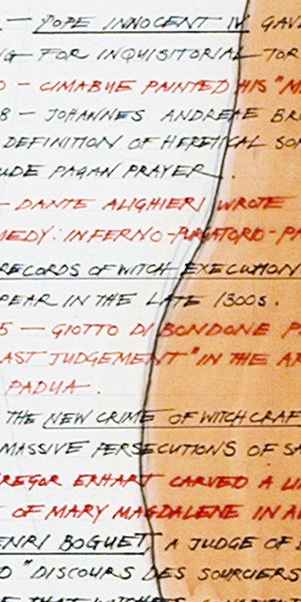 — POPE INNOCENT IV GAV
NG FOR INQUISITORIAL TOR
0 – CIMABUE PAINTED HIS "M
8 – JOHANNES ANDREAE BR
DEFINITION OF HERETICAL SOR
UDE PAGAN PRAYER.
– DANTE ALIGHIERI WROTE
MEDY: INFERNO-PURGATORO-PA
RECORDS OF WITCH EXECUTION
PEAR IN THE LATE 1300s.
5 — GIOTTO DI BONDONE PA
AST JUDGEMENT" IN THE AR
PADUA.
THE NEW CRIME OF WITCHCRAF
MASSIVE PERSECUTIONS OF SA
REGOR ERHART CARVED A LI
OF MARY MAGDALENE IN A
ENRI BOGUET, A JUDGE OF
D "DISCOURS DES SORCIERS
THAT WITCHES